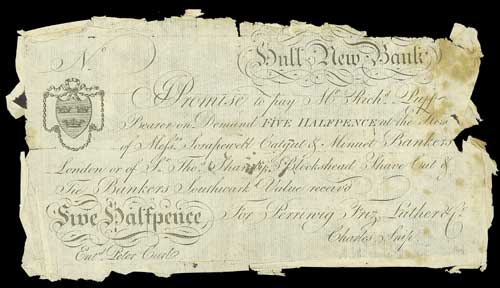 Nº
Hull New Bank
Promise to pay Mr Richd. Puff
Bearer on Demand FIVE HALFPENCE at the
of Messrs. Scrapewell Catgut & Minuet Bankers
London or of Sr. Thos. Blockshead Shave Cut &
Tie Bankers Southwark Value receivd
Five Halfpence
For Perriwig Friz Lather & Co.
Charles Snip
Entd. Peter Curl